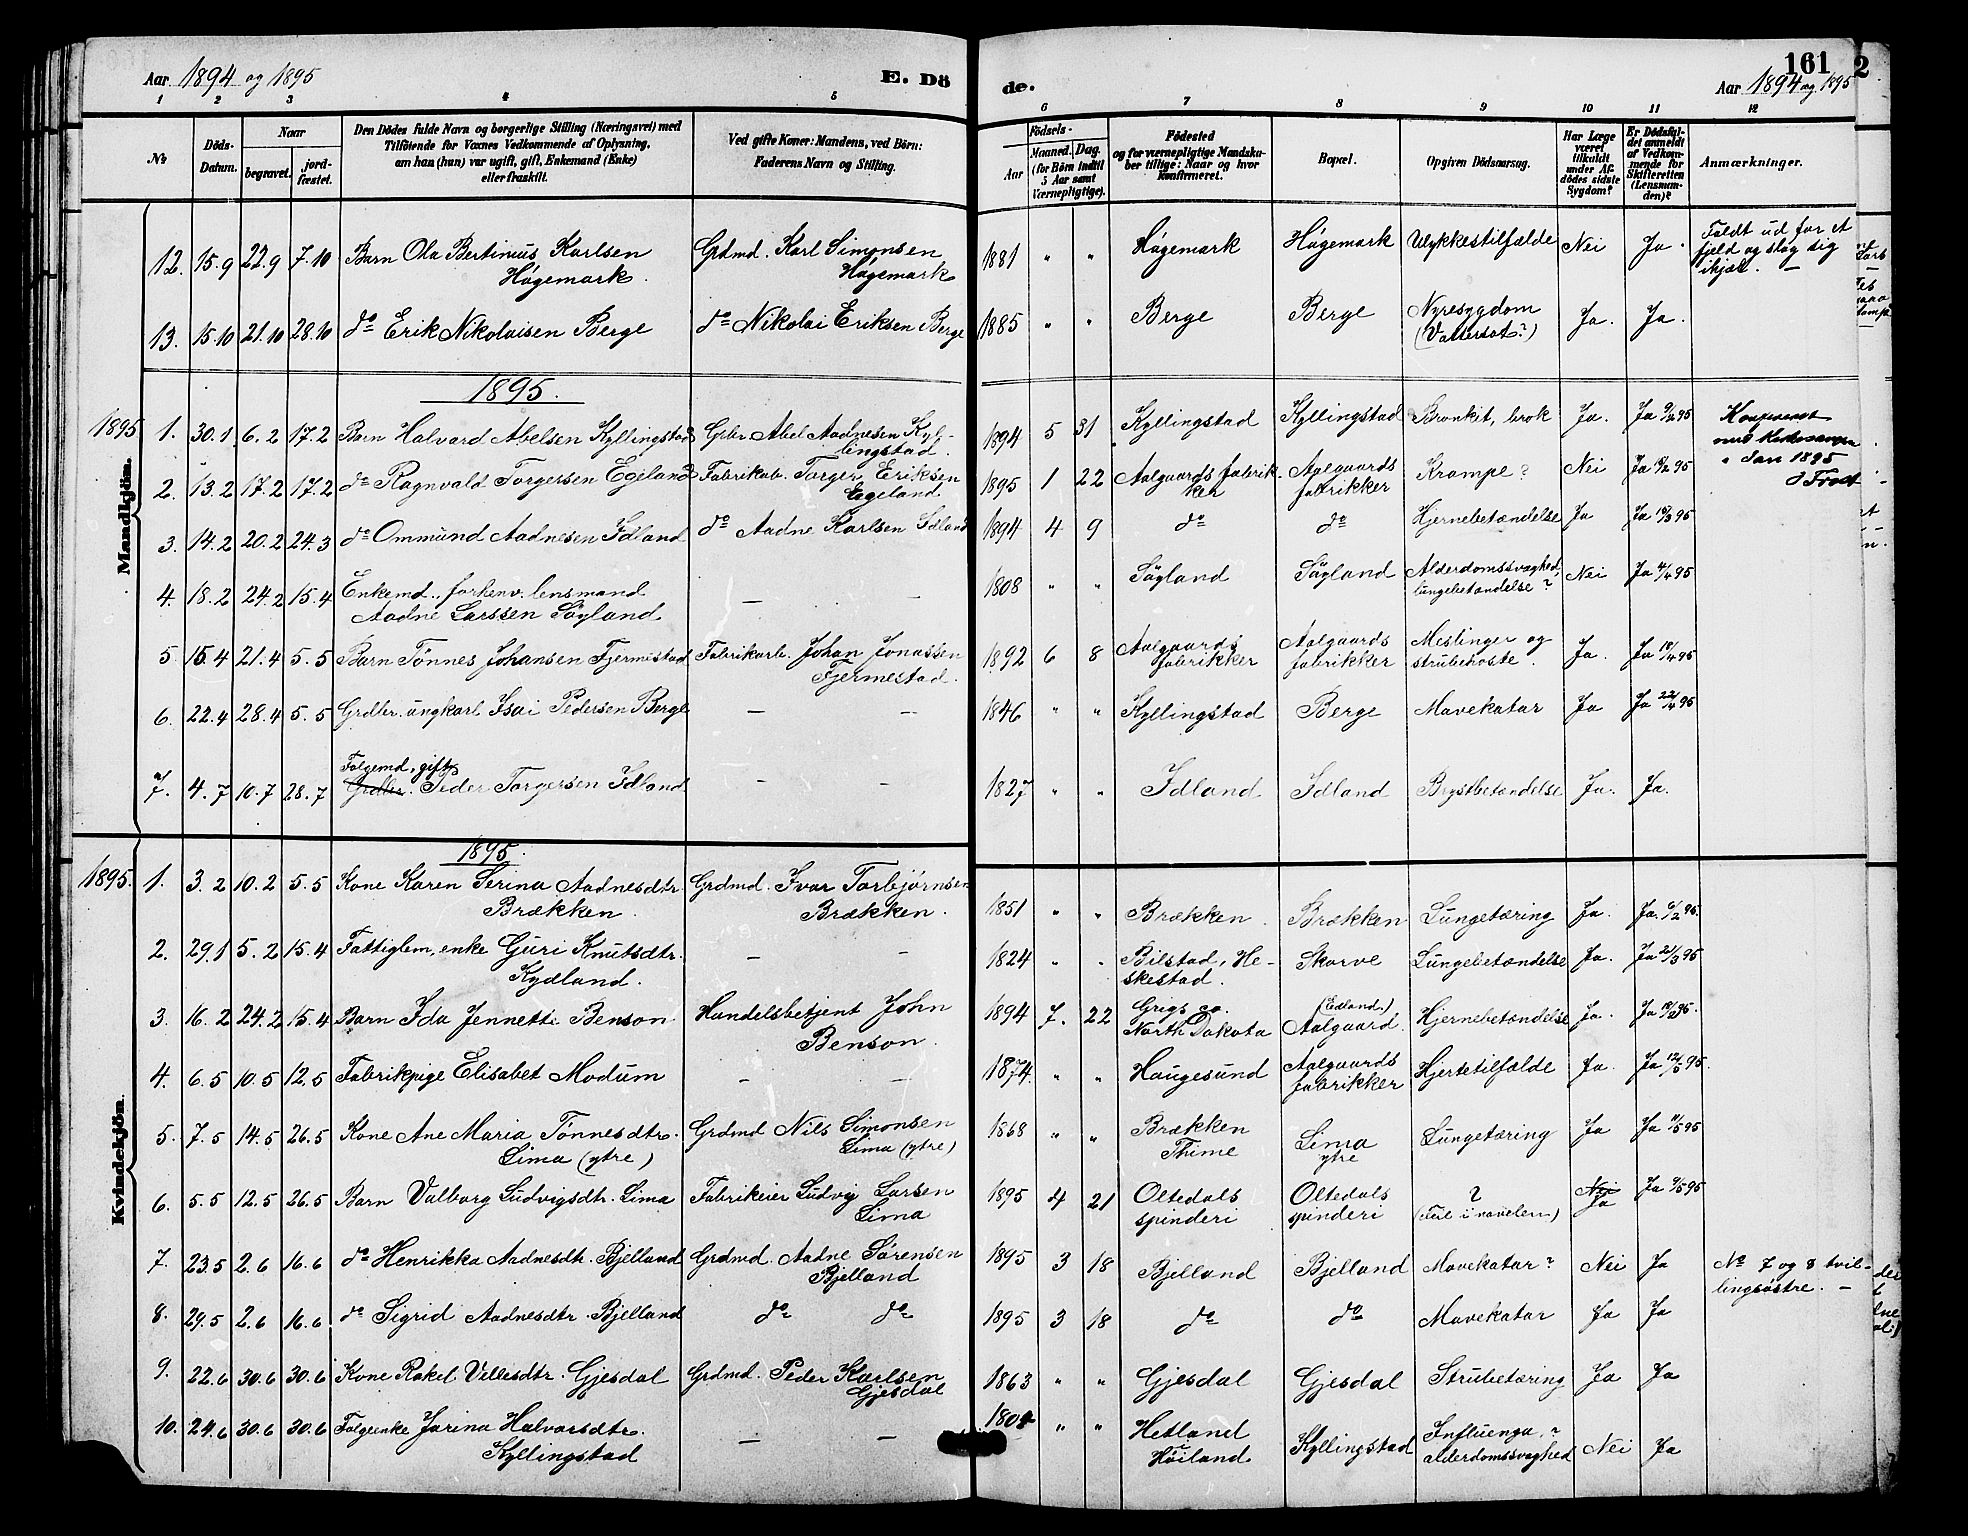 Aar 1894 og 1895
E. Dö
de.
161
2
Aar 1894 og 1895
1 2 3 4 5 6 7 8 9 10 11 12
No
Döds-Datum.
Naar
begravet.
jordfæstet.
Den Dödes fulde Navn og borgerlige Stilling (Næringsvei) med
Tilföiende for Voxnes Vedkommende af Oplysning,
om han (hun) var ugift, gift, Enkemand (Enke)
eller fraskilt.
Ved gifte Koner: Mandens, ved Börn:
Faderens Navn og Stilling.
Födsels-
Aar
Maaned. Dag.
(for Börn indtil
5 Aar samt
Værnepligtige).
Födested
og for værnepligtige Mandska-
ber tillige: Naar og hvor
konfirmeret.
Bopæl.
Opgiven Dödsaarsag.
Har Læge
været
tilkaldt
under Af-
dödes sidste
Sygdom?
Er Dödsfal-
det anmeldt
af Vedkom-
mende for
Skifteretten
(Lensman-
den)?
Anmærkninger.
12. 15.9 22.9 7.10 Barn Ola Bertinius Karlsen Høgemark. Grdmd. Karl Simonsen Høgemark 1881 " " Høgemark Høgemark Ulykkestilfælde Nei Ja. Faldt ud for et fjeld og slog sig ihjæl. —
13. 15.10 21.10 28.10 do Erik Nikolaisen Berge do Nikolai Eriksen Berge 1885 " " Berge Berge Nyresygdom (Vattersot?) Ja. Ja.
1895.
Mandkjön.
1895 1. 30.1 6.2 17.2 Barn Halvard Abelsen Kyllingstad Grbr. Abel Aadnesen Kyllingstad. 1894 5 31 Kyllingstad Kyllingstad Bronkit, brok Ja. Ja 9/2 95
1895
2. 13.2 17.2 17.2 do Ragnvald Torgersen Egeland Fabrikarb. Torger Eriksen Egeland 1895 1 22 Aalgaards fabrikker Aalgaards fabrikker Krampe? Nei Ja 18/2 95
3. 14.2 20.2 24.3 do Ommund Aadnesen Idland do Aadne Karlsen Idland 1894 4 9 do do Hjernebetændelse Ja Ja 19/3 95
4. 18.2 24.2 15.4 Enkemd., forhenv. lensmand Aadne Larssen Søyland — — 1808 " " Søyland Søyland Alderdomssvaghed, lungebetændelse? Nei Ja 4/4 95
5 15.4 21.4 5.5 Barn Tønnes Johansen Fjermestad Fabrikarb. Johan Jonassen Fjermestad. 1892 6 8 Aalgaards fabrikker Aalgaards fabrikker Meslinger og strubehoste. Ja. Ja 18/4 95
6. 22.4 28.4 5.5 Grdbr. ungkarl Isai Pedersen Berge — — 1846 " " Kyllingstad Berge Mavekatar Ja Ja 22/4 95
7. 4.7 10.7 28.7 Folgemd., gift, Grdbr. Peder Torgersen Idland — — 1827 " " Idland Idland Brystbetændelse Ja. Ja.
1895.
Kvindekjön.
1895. 1. 3.2 10.2 5.5 Kone Karen Serina Aadnesdtr. Brækken. Grdmd. Ivar Torbjørnsen Brækken. 1851 " " Brækken. Brækken Lungetæring Ja. Ja. 6/2 95.
2. 29.1 5.2 15.4 Fattiglem, enke Guri Knutsdtr. Kydland. — — 1824 " " Bilstad, Heskestad. Skarve Lungebetændelse Ja. Ja 21/3 95
3. 16.2 24.2 15.4 Barn Ida Jennette Benson Handelsbetjent John Benson. 1894 7. 22 Grigs co. North Dakota (Edland.) Aalgaard. Hjernebetændelse Ja. Ja 18/2 95.
4. 6.5 10.5 12.5 Fabrikpige Elisabet Modum — — 1874. " " Haugesund Aalgaards fabrikker Hjertetilfælde Ja. Ja 12/5 95.
5. 7.5 14.5 26.5 Kone Ane Maria Tønnesdtr. Lima (ytre) Grdmd Nils Simonsen Lima (ytre) 1868 " " Brækken Thime Lima ytre Lungetæring Ja Ja 11/5 95
6. 5.5 12.5 26.5 Barn Valborg Ludvigsdtr. Lima Fabrikeier Ludvig Larsen Lima 1895 4 21 Oltedals spinderi Oltedals spinderi ? (Feil i navelen) Nei Ja Ja 9/5 95
7. 23.5 2.6 16.6 do Henrikka Aadnesdtr. Bjelland Grdmd. Aadne Sørensen Bjelland 1895 3 18 Bjelland Bjelland Mavekatar? Nei Ja No 7 og 8 tvillingsøstre. —
8. 29.5 2.6 16.6 do Sigrid Aadnesdtr. Bjelland do do 1895 3 18 do do Mavekatar Ja Ja
9. 22.6 30.6 30.6 Kone Rakel Vellesdtr. Gjesdal Grdmd. Peder Karlsen Gjesdal 1863 " " Gjesdal Gjesdal Strubetæring Ja Ja
10. 24.6 30.6 30.6 Folgeenke Jorina Halvorsdtr. Kyllingstad — — 1804 " " Hetland Høiland Kyllingstad Influenga,? alderdomssvaghed Nei Ja